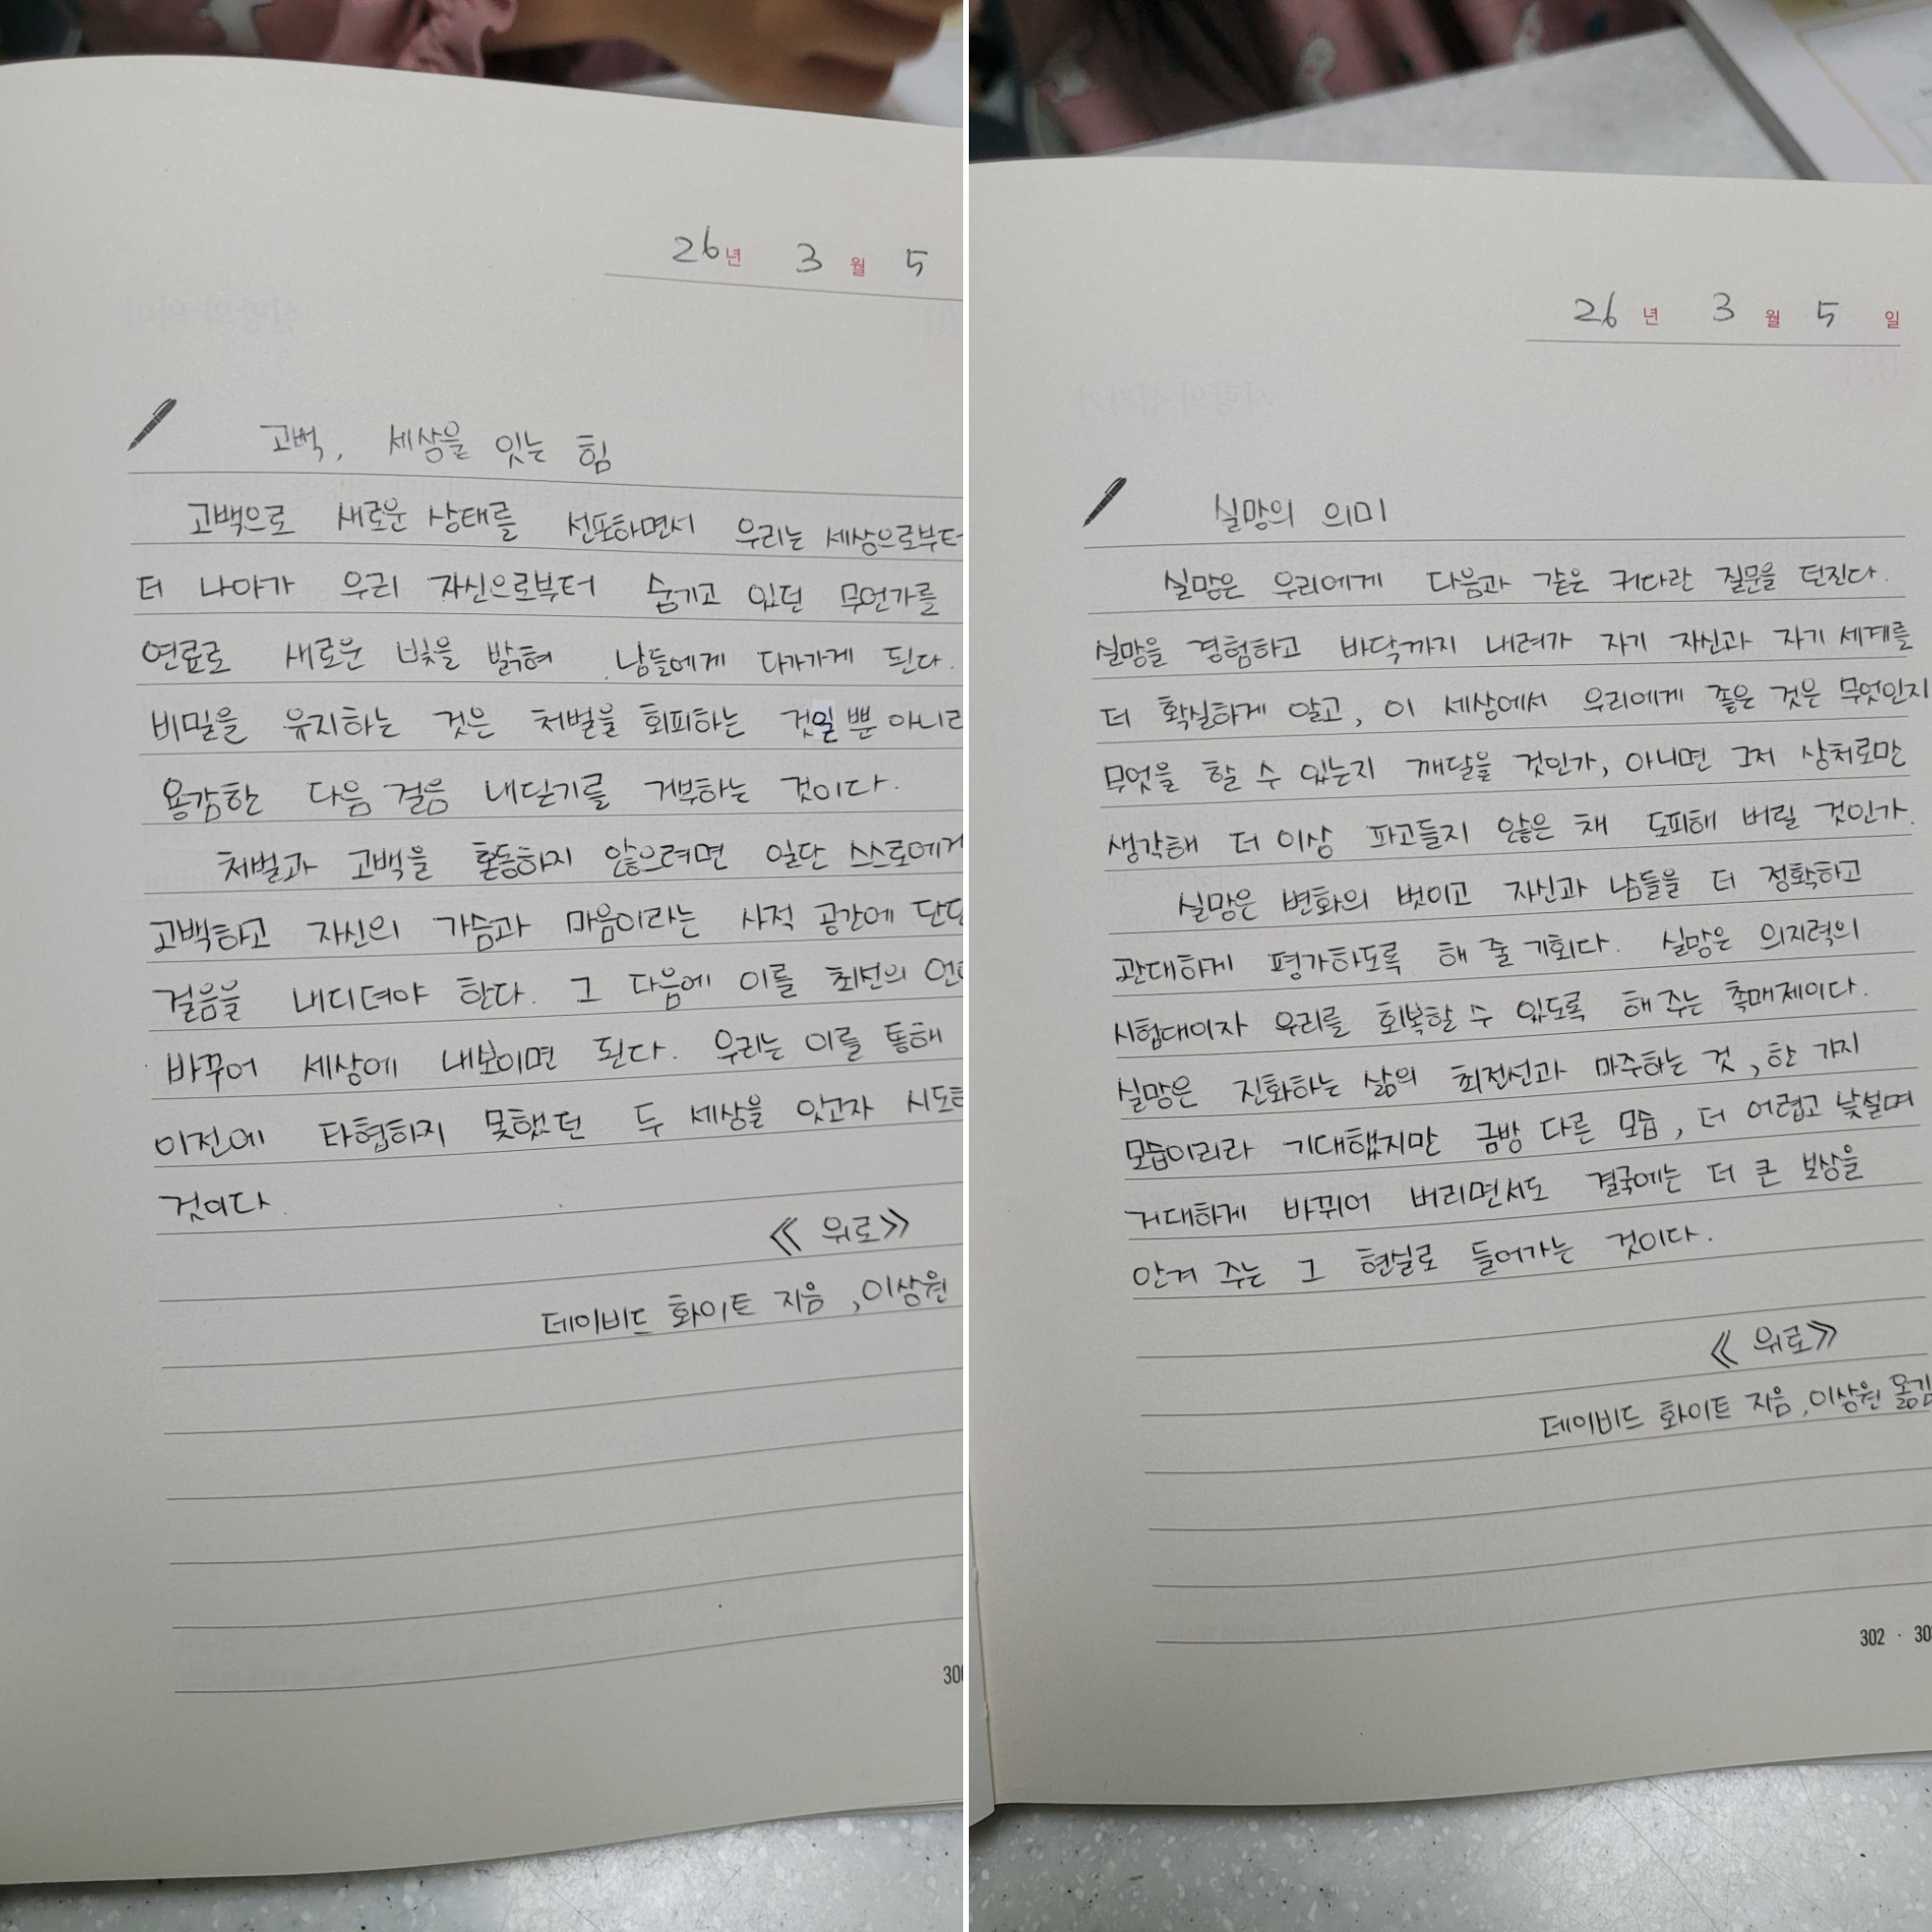 26년 3월 5
고벽, 세상을 잇는 힘
고백으로 새로운 상태를 선포하면서 우리는 세상으로부터
더 나아가 우리 자신으로부터 숨기고 있던 무언가를
연료로 새로운 빛을 밝혀 남들에게 다가가게 된다.
비밀을 유지하는 것은 처벌을 회피하는 것일 뿐 아니라
용감한 다음 걸음 내딛기를 거부하는 것이다.
처벌과 고백을 혼동하지 않으려면 일단 스스로에게
고백하고 자신의 가슴과 마음이라는 사적 공간에
걸음을 내디뎌야 한다. 그 다음에 이를 최선의
바꾸어 세상에 내보이면 된다. 우리는 이를 통해
이전에 타협하지 못했던 두 세상을 잇고자
것이다
《위로》
데이비드 화이트 지음, 이상원
300
26년 3월 5일
실망의 의미
실망은 우리에게 다음과 같은 커다란 질문을 던진다.
실망을 경험하고 바닥까지 내려가 자기 자신과 자기 세계를
더 확실하게 알고, 이 세상에서 우리에게 좋은 것은 무엇인지
무엇을 할 수 있는지 깨달을 것인가, 아니면 그저 상처로만
생각해 더 이상 파고들지 않은 채 도피해 버릴 것인가.
실망은 변화의 벗이고 자신과 남들을 더 정확하고
관대하게 평가하도록 해 줄 기회다. 실망은 의지력의
시험대이자 우리를 회복할 수 있도록 해 주는 촉매제이다.
실망은 진화하는 삶의 최전선과 마주하는 것, 한 가지
모습이리라 기대했지만 금방 다른 모습, 더 어렵고 낯설며
거대하게 바뀌어 버리면서도 결국에는 더 큰 보상을
안겨 주는 그 현실로 들어가는 것이다.
《위로》
데이비드 화이트 지음, 이상원 옮김
302 · 30